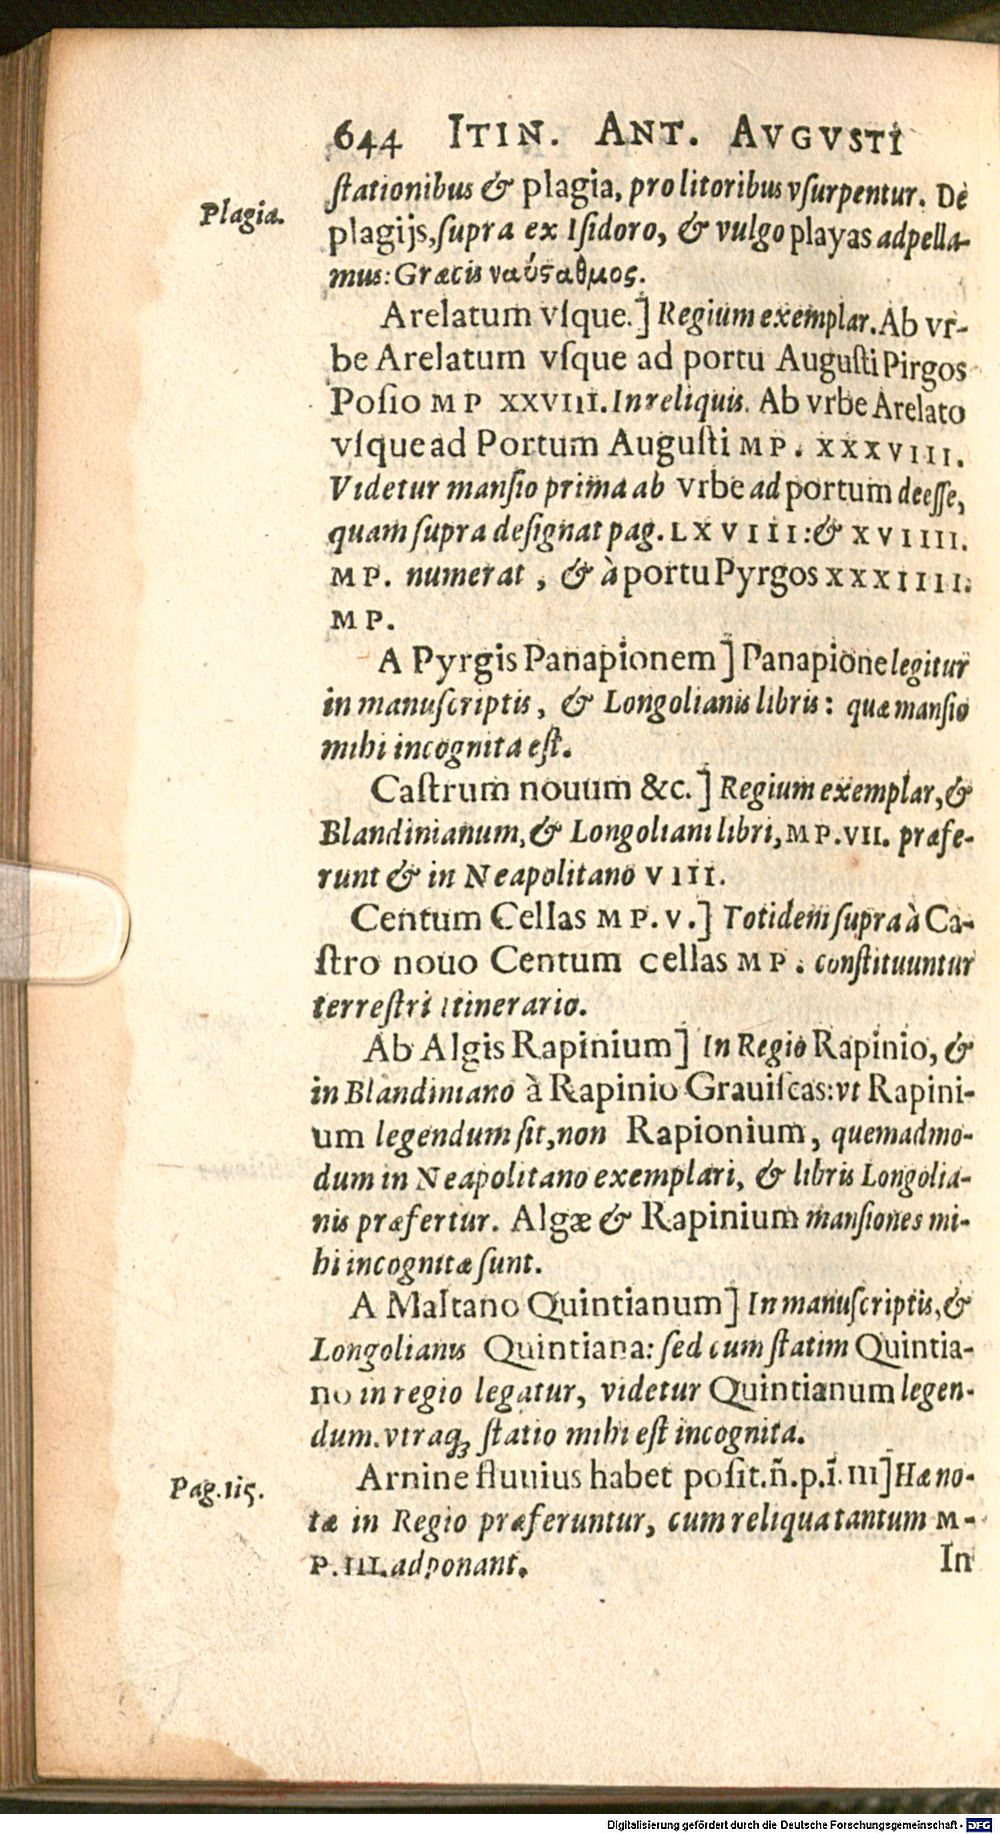 644 ITIN. ANT. AVGVSTI
Plagiæ.
ſtationibus & plagia, pro litoribus vſurpentur. De
plagijs, ſupra ex Iſidoro, & vulgo playas adpella-
mus: Græcis ναύςαθμος.
Arelatum vſque.] Regium exemplar. Ab vr-
be Arelatum vſque ad portu Auguſti Pirgos
Poſio MP XXVIII. In reliquis. Ab vrbe Arelato
vſque ad Portum Auguſti MP. XXXVIII.
Videtur manſio prima ab vrbe ad portum deeſſe,
quam ſupra deſignat pag. LXVIII: & XVIIII.
MP. numerat, & à portu Pyrgos XXXIIII.
MP.
A Pyrgis Panapionem] Panapione legitur
in manuſcriptis, & Longolianis libris: quæ manſio
mihi incognita eſt.
Caſtrum nouum &c.] Regium exemplar, &
Blandinianum, & Longoliani libri, MP. VII. præfe-
runt & in Neapolitano VIII.
Centum Cellas MP. V.] Totidem ſupra à Ca-
ſtro nouo Centum cellas MP. conſtituuntur
terreſtri itinerario.
Ab Algis Rapinium] In Regio Rapinio, &
in Blandiniano à Rapinio Grauiſcas: vt Rapini-
um legendum ſit, non Rapionium, quemadmo-
dum in Neapolitano exemplari, & libris Longolia-
nis præfertur. Algæ & Rapinium manſiones mi-
hi incognitæ ſunt.
A Maltano Quintianum] In manuſcriptis, &
Longolianis Quintiana: ſed cum ſtatim Quintia-
no in regio legatur, videtur Quintianum legen-
dum. vtraqꝫ ſtatio mihi eſt incognita.
Pag. 115.
Arnine fluuius habet poſit. ñ. p. ĩ. III] Hæ no-
tæ in Regio præferuntur, cum reliqua tantum M-
P. III. adponant.
In
Digitalisierung gefördert durch die Deutsche Forschungsgemeinschaft - DFG